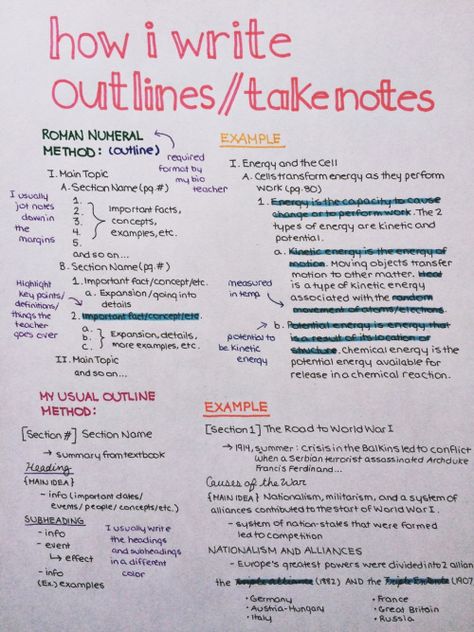 how i write
outlines//take notes
ROMAN NUMERAL
METHOD: (outline)
required
format by
my bio
teacher
I. Main Topic
A. Section Name (pg.#)
1.
2.
3.
4.
5.
Important facts,
concepts,
examples, etc.
and so on...
I usually
jot notes
down in
the
margins
B. Section Name (pg.#)
1. Important fact/concept/etc.
a. Expansion/going into
details
2. Important fact/concept/etc.
a.
b.
c.
Expansion, details,
more examples, etc.
II. Main Topic
and so on...
Highlight
key points/
definitions/
things the
teacher
goes over
EXAMPLE
I. Energy and the Cell
A. Cells transform energy as they perform
work (pg. 80)
1. Energy is the capacity to cause
change or to perform work. The 2
types of energy are kinetic and
potential.
a. Kinetic energy is the energy of
motion. Moving objects transfer
motion to other matter. Heat
is a type of kinetic energy
associated with the random
movement of atoms/electrons.
measured
in temp
b. Potential energy is energy that
is a result of its location or
structure. Chemical energy is the
potential energy available for
release in a chemical reaction.
potential to
be kinetic
energy
MY USUAL OUTLINE
METHOD:
[Section #] Section Name
→ summary from textbook
Heading
{MAIN IDEA}
- info (important dates/
events/people/concepts/etc.)
SUBHEADING
- info
- event
↳ effect
- info
(Ex.) examples
I usually write
the headings
and subheadings
in a different
color
EXAMPLE
[Section 1] The Road to World War I
→ 1914, summer: Crisis in the Balkins led to conflict
when a Serbian terrorist assassinated Archduke
Francis Ferdinand...
Causes of the War
{MAIN IDEA} Nationalism, militarism, and a system of
alliances contributed to the start of World War I.
- system of nation-states that were formed
led to competition
NATIONALISM AND ALLIANCES
- Europe's greatest powers were divided into 2 allian
the Triple Alliance (1882) AND the Triple Entente (1907
• Germany
• Austria-Hungary
• Italy
• France
• Great Britain
• Russia